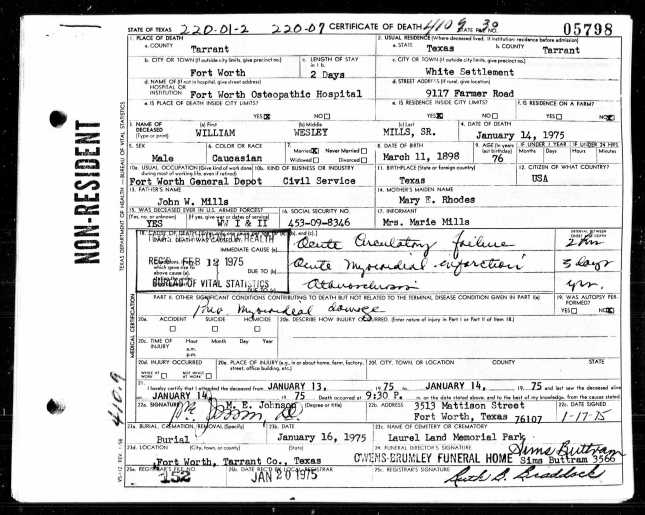 STATE OF TEXAS 220.01-2 220-07 CERTIFICATE OF DEATH 4109 39 STATE FILE NO. 05798
1. PLACE OF DEATH
a. COUNTY Tarrant
2. USUAL RESIDENCE (Where deceased lived. If institution: residence before admission)
a. STATE Texas b. COUNTY Tarrant
b. CITY OR TOWN (If outside city limits, give precinct no.) Fort Worth
c. LENGTH OF STAY in 1 b. 2 Days
c. CITY OR TOWN (If outside city limits, give precinct no.) White Settlement
d. NAME OF (If not in hospital, give street address) HOSPITAL OR INSTITUTION Fort Worth Osteopathic Hospital
d. STREET ADDRESS (If rural, give location) 9117 Farmer Road
e. IS PLACE OF DEATH INSIDE CITY LIMITS? YES X NO
e. IS RESIDENCE INSIDE CITY LIMITS? YES X NO
f. IS RESIDENCE ON A FARM? YES NO X
3. NAME OF DECEASED (Type or print) (a) First WILLIAM (b) Middle WESLEY (c) Last MILLS, SR.
4. DATE OF DEATH January 14, 1975
5. SEX Male
6. COLOR OR RACE Caucasian
7. Married X Never Married Widowed Divorced
8. DATE OF BIRTH March 11, 1898
9. AGE (In years last birthday) 76
IF UNDER 1 YEAR Months Days
IF UNDER 24 HRS. Hours Min.
10a. USUAL OCCUPATION (Give kind of work done during most of working life, even if retired) Fort Worth General Depot
10b. KIND OF BUSINESS OR INDUSTRY Civil Service
11. BIRTHPLACE (State or foreign country) Texas
12. CITIZEN OF WHAT COUNTRY? USA
13. FATHER'S NAME John W. Mills
14. MOTHER'S MAIDEN NAME Mary E. Rhodes
15. WAS DECEASED EVER IN U.S. ARMED FORCES? (Yes, no, or unknown) YES (If yes, give war or dates of service) WW I & II
16. SOCIAL SECURITY NO. 453-09-8346
17. INFORMANT Mrs. Marie Mills
18. CAUSE OF DEATH
PART I. DEATH WAS CAUSED BY:
HEALTH
IMMEDIATE CAUSE (a) Acute Circulatory failure
INTERVAL BETWEEN
REC'D FEB 12 1975
which gave rise to above cause (a)
DUE TO (b) Acute Myocardial infarction 3 days
BUREAU OF VITAL STATISTICS
DUE TO (c) yrs.
PART II. OTHER SIGNIFICANT CONDITIONS CONTRIBUTING TO DEATH BUT NOT RELATED TO THE TERMINAL DISEASE CONDITION GIVEN IN PART I(a)
Myocardial damage
19. WAS AUTOPSY PERFORMED? YES NO X
20a. ACCIDENT SUICIDE HOMICIDE
20b. DESCRIBE HOW INJURY OCCURRED. (Enter nature of injury in Part I or Part II of Item 18.)
20c. TIME OF INJURY Hour a.m. p.m. Month Day Year
20d. INJURY OCCURRED WHILE AT WORK NOT WHILE AT WORK
20e. PLACE OF INJURY (e.g., in or about home, farm, factory, street, office building, etc.)
20f. CITY, TOWN, OR LOCATION COUNTY STATE
21. I hereby certify that I attended the deceased from JANUARY 13, 19 75 to JANUARY 14, 19 75 and last saw the deceased alive
JANUARY 14 19 75 Death occurred at 9:30 P. m. on the date stated above, and to the best of my knowledge, from the causes stated
22a. SIGNATURE M. E. Johnson (Degree or title)
22b. ADDRESS 3513 Mattison Street
Fort Worth, Texas 76107
22c. DATE SIGNED 1-17-75
23a. BURIAL, CREMATION, REMOVAL (Specify) Burial
23b. DATE January 16, 1975
23c. NAME OF CEMETERY OR CREMATORY Laurel Land Memorial Park
23d. LOCATION (City, town, or county) (State) Fort Worth, Tarrant Co., Texas
24. FUNERAL DIRECTOR'S SIGNATURE Sims Buttram
OWENS-BRUMLEY FUNERAL HOME Sims Buttram 3566
25a. REGISTRAR'S FILE NO. 152
25b. DATE REC'D BY LOCAL REGISTRAR JAN 20 1975
25c. REGISTRAR'S SIGNATURE Ruth G. Braddock
NON-RESIDENT
TEXAS DEPARTMENT OF HEALTH — BUREAU OF VITAL STATISTICS
MEDICAL CERTIFICATION
410.9